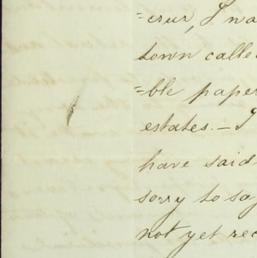 =crux, I wa
town calle
=ble paper
estates. — I
have said
sorry to say
not yet rec